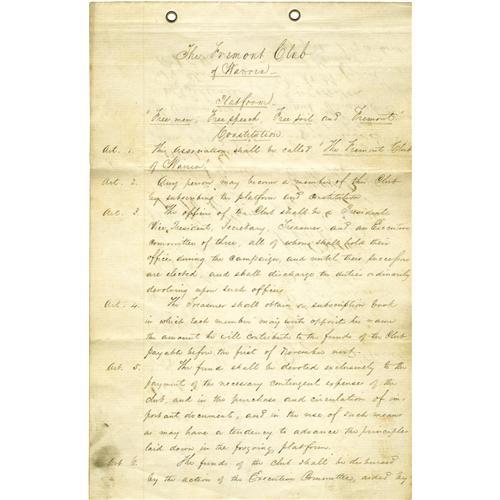 The Fremont Club
of Warren
Platform
"Free men, Free speech, Free soil and Fremont"
Constitution
Art. 1. The Association shall be called "The Fremont Club
of Warren"
Art. 2. Any person may become a member of this Club
by subscribing the platform and constitution
Art. 3. The officers of the Club shall be a President
Vice, President, Secretary, Treasurer, and an Executive
committee of three, all of whom shall hold their
offices during the campaign, and until their successors
are elected, and shall discharge the duties ordinarily
devolving upon such officers
Art. 4. The Treasurer shall obtain a subscription book
in which each member may write opposite his name
the amount he will contribute to the funds of the Club
payable before the first of November next.
Art. 5. The fund shall be devoted exclusively to the
payment of the necessary contingent expenses of the
club, and in the purchase and circulation of im-
portant documents, and in the use of such means
as may have a tendency to advance the principles
laid down in the forgoing platform
Art 6. The funds of the club shall be disbursed
by the action of the Executive Committee, aided by